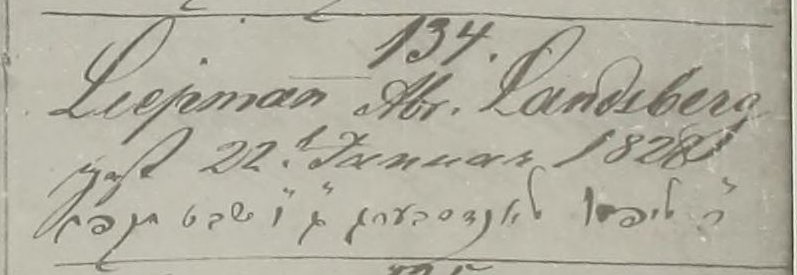 134.
Liepman Abr. Landsberg
gest 22.t Januar 1828
ר" ליפמן לאנדסבערג ג" ו" שבט תקפח